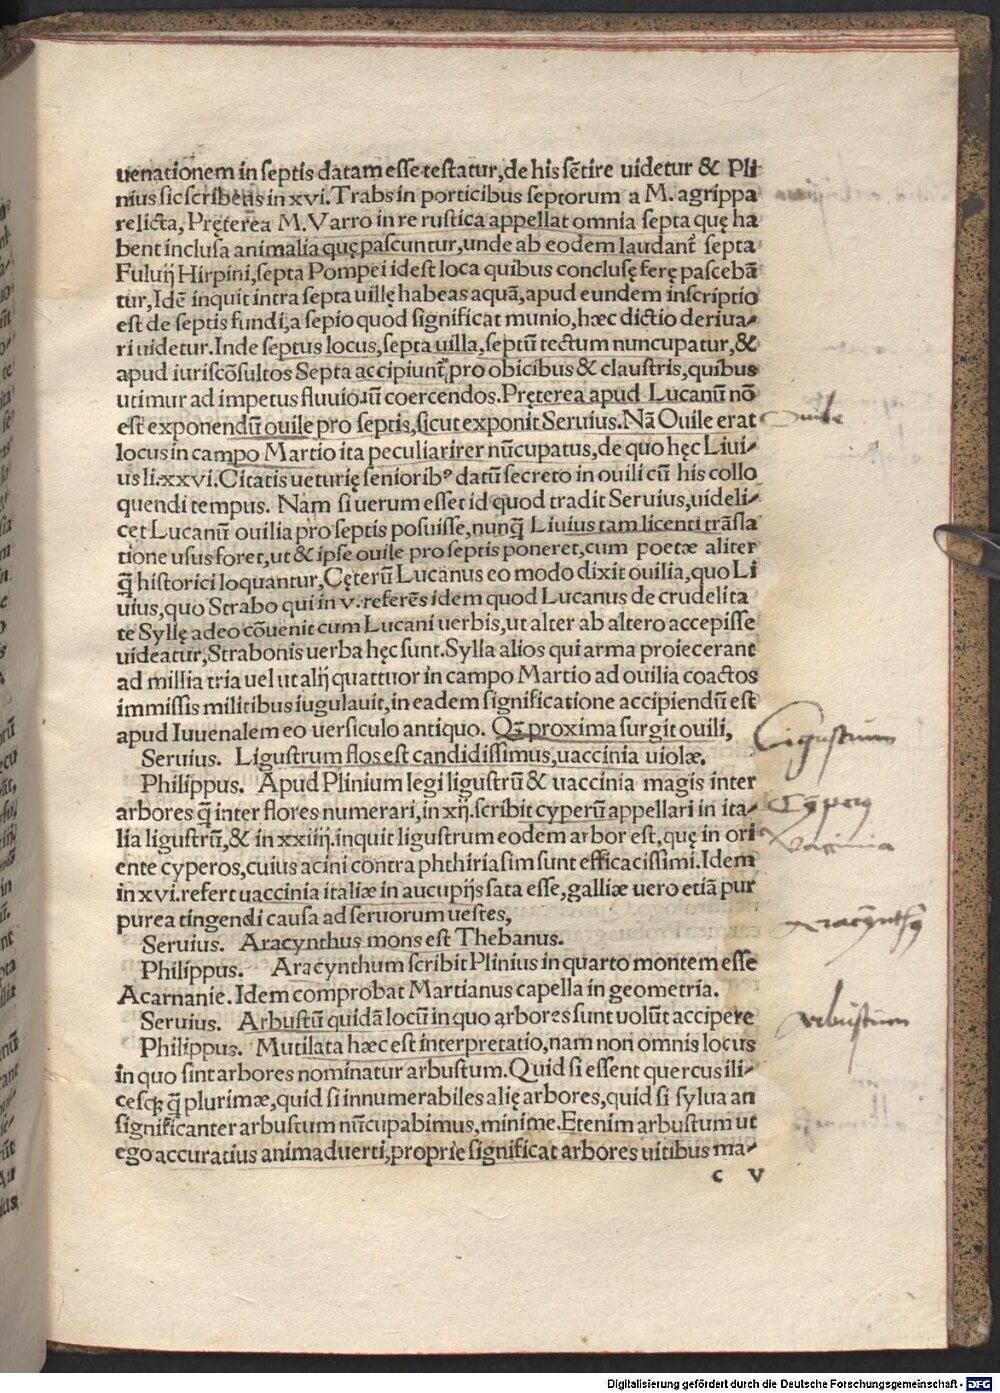 uenationem in septis datam esse testatur, de his sẽtire uidetur & Pli
nius sic scribẽns in xvi. Trabs in porticibus septorum a M. agrippa
relicta, Pręterea M. Varro in re rustica appellat omnia septa quę ha
bent inclusa animalia quę pascuntur, unde ab eodem laudant᷑ septa
Fuluij Hirpini, septa Pompei idest loca quibus conclusę ferę pascebã
tur, Idẽ inquit intra septa uillę habeas aquã, apud eundem inscriptio
est de septis fundi, a sepio quod significat munio, hæc dictio deriua-
ri uidetur. Inde septus locus, septa uilla, septũ tectum nuncupatur, &
apud iuriscõsultos Septa accipiunt᷑, pro obicibus & claustris, quibus
utimur ad impetus fluuiorũ coercendos. Pręterea apud Lucanũ nõ
est exponendũ ouile pro septis, sicut exponit Seruius. Nã Ouile erat
locus in campo Martio ita peculiarirer nũcupatus, de quo hęc Liui-
us li. xxvi. Citatis ueturię seniorib⁹ datũ secreto in ouili cũ his collo
quendi tempus. Nam si uerum esset id quod tradit Seruius, uideli-
cet Lucanũ ouilia pro septis posuisse, nunq̃ Liuius tam licenti trãsla
tione usus foret, ut & ipse ouile pro septis poneret, cum poetæ aliter
q̃ historici loquantur, Cęterũ Lucanus eo modo dixit ouilia, quo Li
uius, quo Strabo qui in v. referẽs idem quod Lucanus de crudelita
te Syllę adeo cõuenit cum Lucani uerbis, ut alter ab altero accepisse
uideatur, Strabonis uerba hęc sunt. Sylla alios qui arma proiecerant
ad millia tria uel ut alij quattuor in campo Martio ad ouilia coactos
immissis militibus iugulauit, in eadem significatione accipiendũ est
apud Iuuenalem eo uersiculo antiquo. Qꝫ proxima surgit ouili,
Seruius. Ligustrum flos est candidissimus, uaccinia uiolæ.
Philippus. Apud Plinium legi ligustrũ & uaccinia magis inter
arbores q̃ inter flores numerari, in xij. scribit cyperũ appellari in ita-
lia ligustrũ, & in xxiiij. inquit ligustrum eodem arbor est, quę in ori
ente cyperos, cuius acini contra phthiriasim sunt efficacissimi. Idem
in xvi. refert uaccinia italiæ in aucupijs sata esse, galliæ uero etiã pur
purea tingendi causa ad seruorum uestes,
Seruius. Aracynthus mons est Thebanus.
Philippus. Aracynthum scribit Plinius in quarto montem esse
Acarnanie. Idem comprobat Martianus capella in geometria.
Seruius. Arbustũ quidã locũ in quo arbores sunt uolũt accipere
Philippus. Mutilata hæc est interpretatio, nam non omnis locus
in quo sint arbores nominatur arbustum. Quid si essent quercus ili-
cesqꝫ q̃ plurimæ, quid si innumerabiles alię arbores, quid si sylua an
significanter arbustum nũcupabimus, minime. Etenim arbustum ut
ego accuratius animaduerti, proprie significat arbores uitibus ma-
c v
Ouile
Ligustrum
Cyperꝰ
Vaccinia
Aracynthꝰ
Arbustum
Digitalisierung gefördert durch die Deutsche Forschungsgemeinschaft - DFG